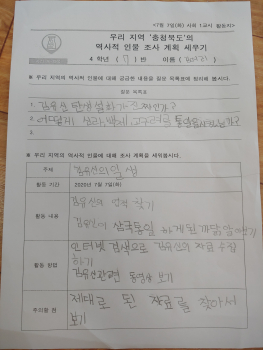 <7월 7일(화) 사회 1교시 활동지>
우리 지역 '충청북도'의
역사적 인물 조사 계획 세우기
4 학년 (7) 반 이름 (
※ 우리 지역의 역사적 인물에 대해 궁금한 내용을 질문 목록표에 정리해 봅시다.
질문 목록표
1. 김유신 탄생설화가 진짜인가?
2. 어떻게 신라,백제,고구려를 통일을시킬수있는가?
3
※ 우리 지역의 역사적 인물에 대해 조사 계획을 세워봅시다.
주제 김유신의 일생
활동 기간 2020년 7월 7일(화)
김유신의 업적 찾기
활동 내용
김유신이 삼국통일 하게된 까닭
인터넷 검색으로 김유신의 자료 수집
활동 방법 하기
김유신관련 동영상 보기
주의할 점 제대로 된 자료를 찾아서
보기